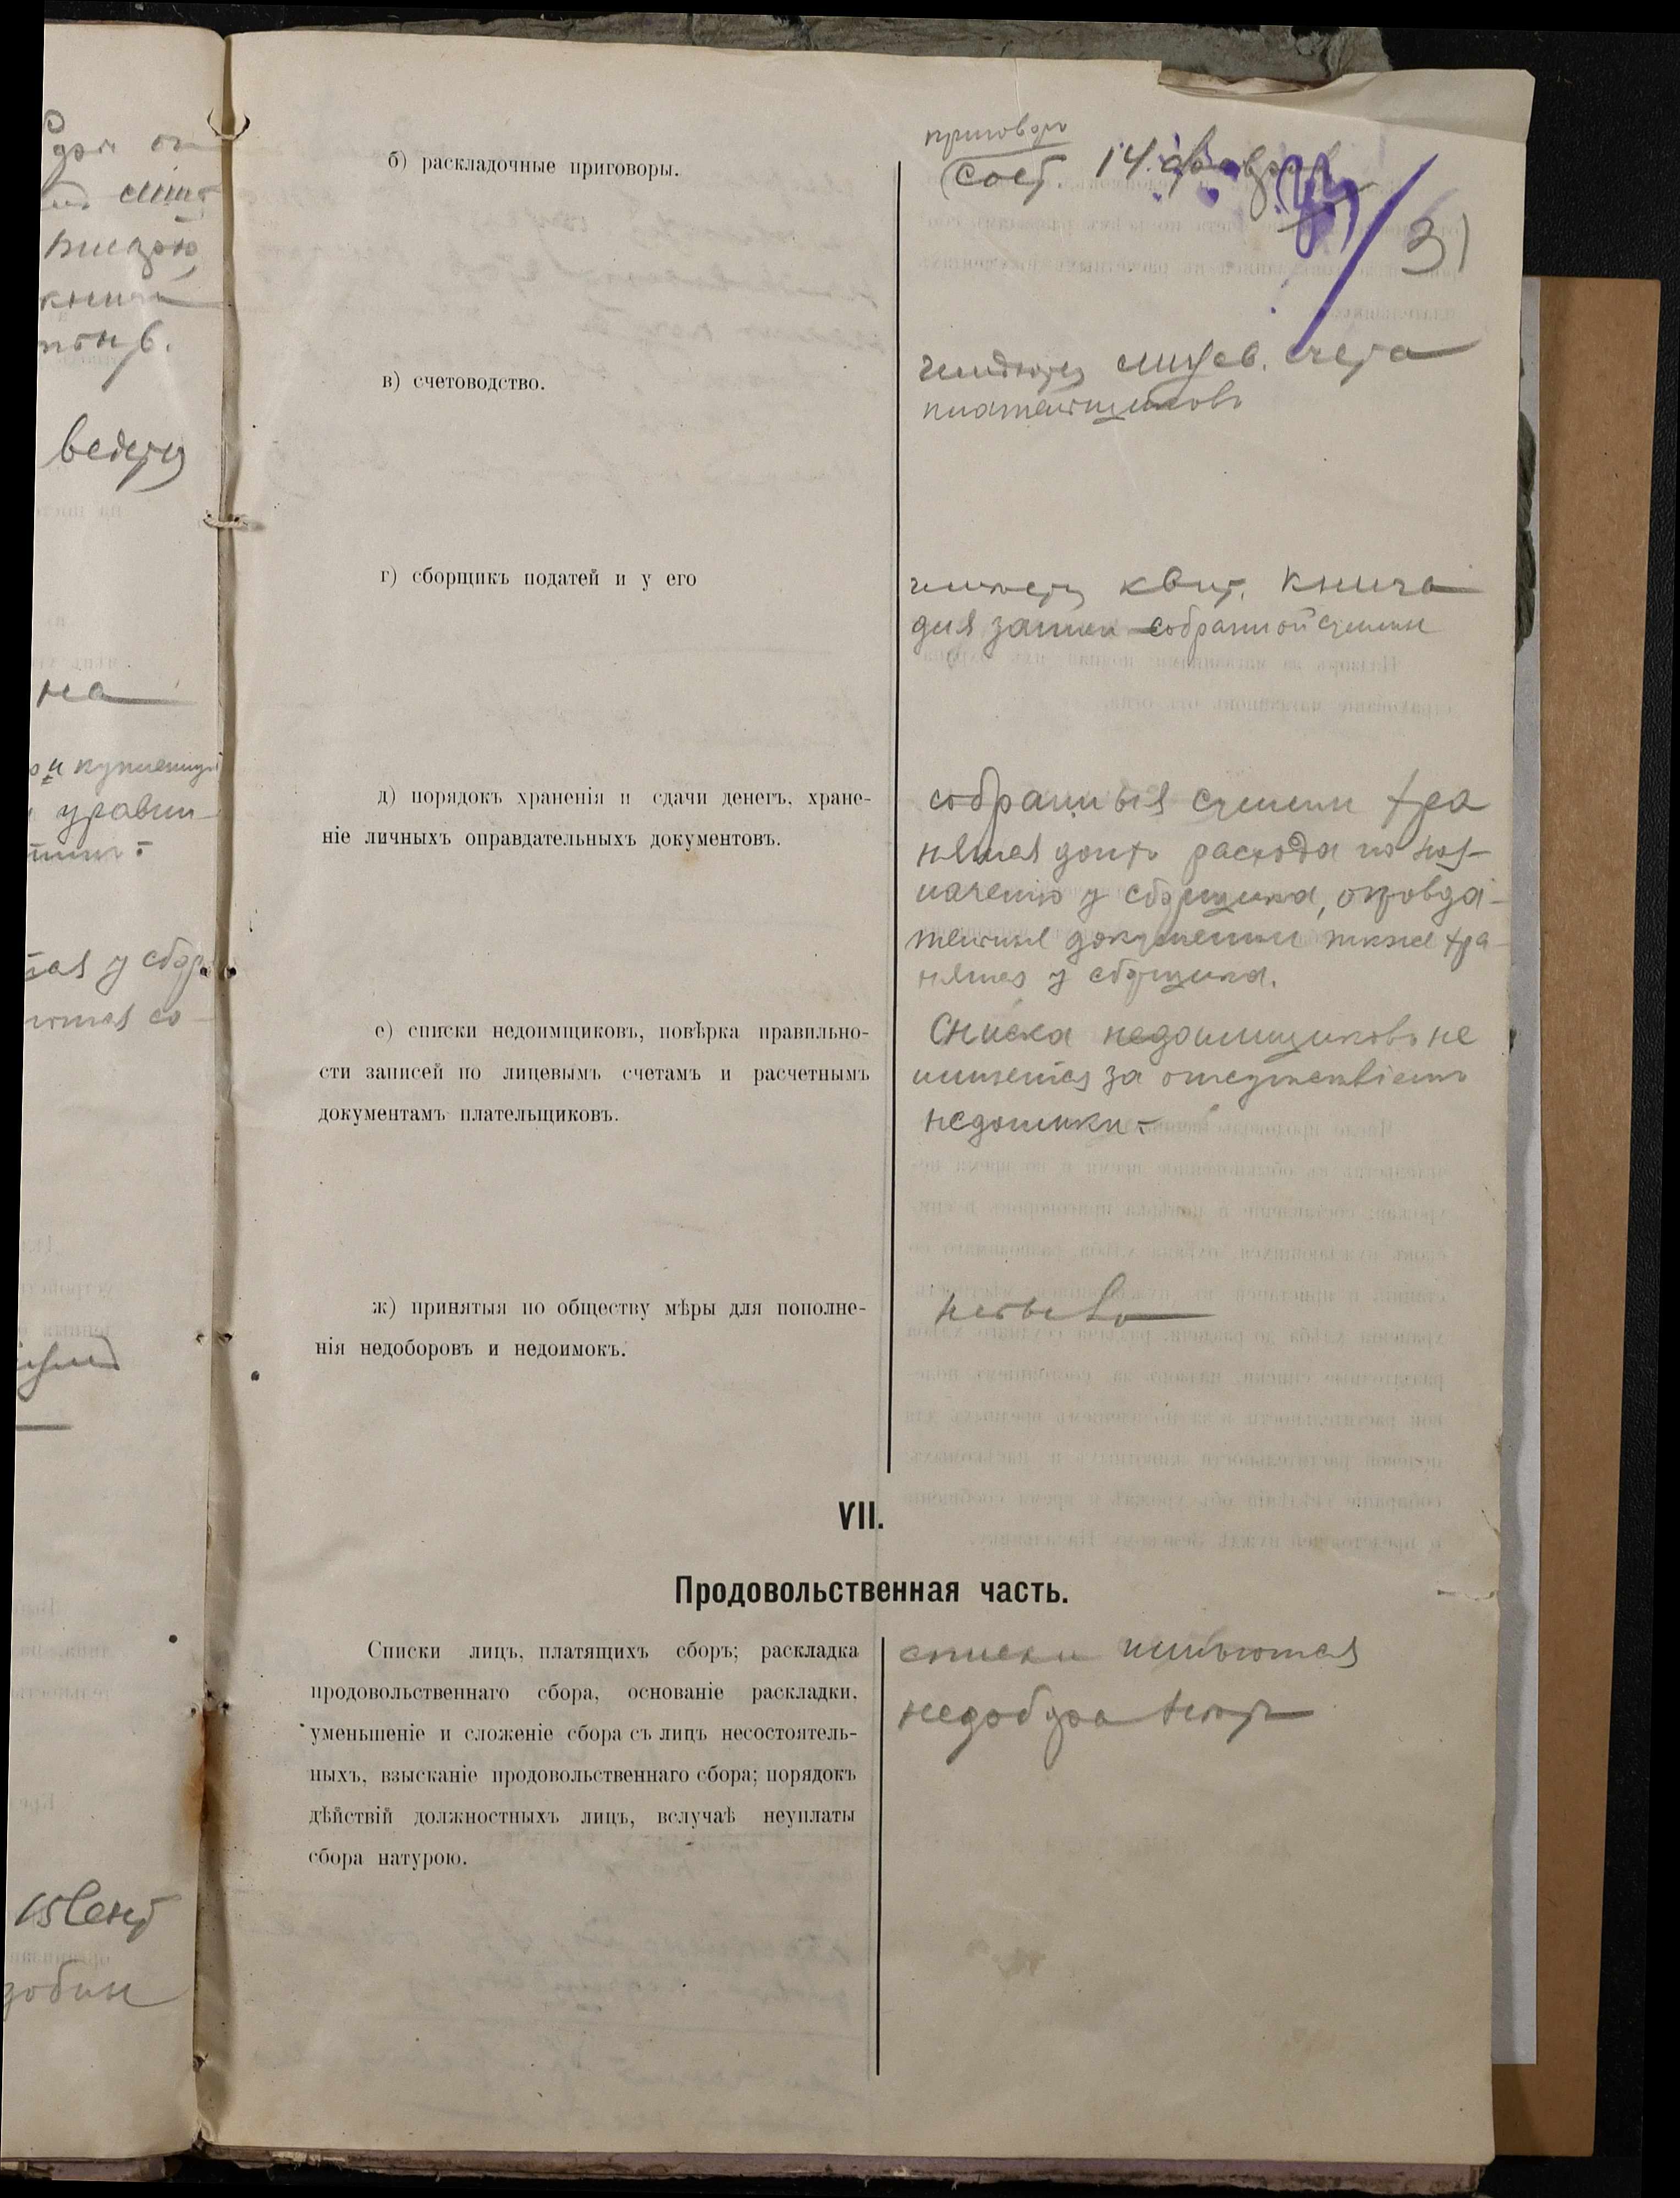 б) раскладочные приговоры.
приговоръ
сост. 14 февраля
31
в) счетоводство.
имѣются лицев. счета
плательщиковъ
г) сборщикъ податей и у его
имѣется квит. книга
для записи собранной суммы
д) порядокъ храненія и сдачи денегъ, хране-
ніе личныхъ оправдательныхъ документовъ.
собранныя суммы хра
нятся до ихъ расхода по наз-
наченію у сборщика, оправда-
тельныя документы также хра-
нятся у сборщика.
е) списки недоимщиковъ, повѣрка правильно-
сти записей по лицевымъ счетамъ и расчетнымъ
документамъ плательщиковъ.
Списка недоимщиковъ не
имѣется за отсутствіемъ
недоимки.
ж) принятыя по обществу мѣры для пополне-
нія недоборовъ и недоимокъ.
не было
VII.
Продовольственная часть.
Списки лицъ, платящихъ сборъ; раскладка
продовольственнаго сбора, основаніе раскладки,
уменьшеніе и сложеніе сбора съ лицъ несостоятель-
ныхъ, взысканіе продовольственнаго сбора; порядокъ
дѣйствій должностныхъ лицъ, вслучаѣ неуплаты
сбора натурою.
списки имѣются
недобора нѣтъ